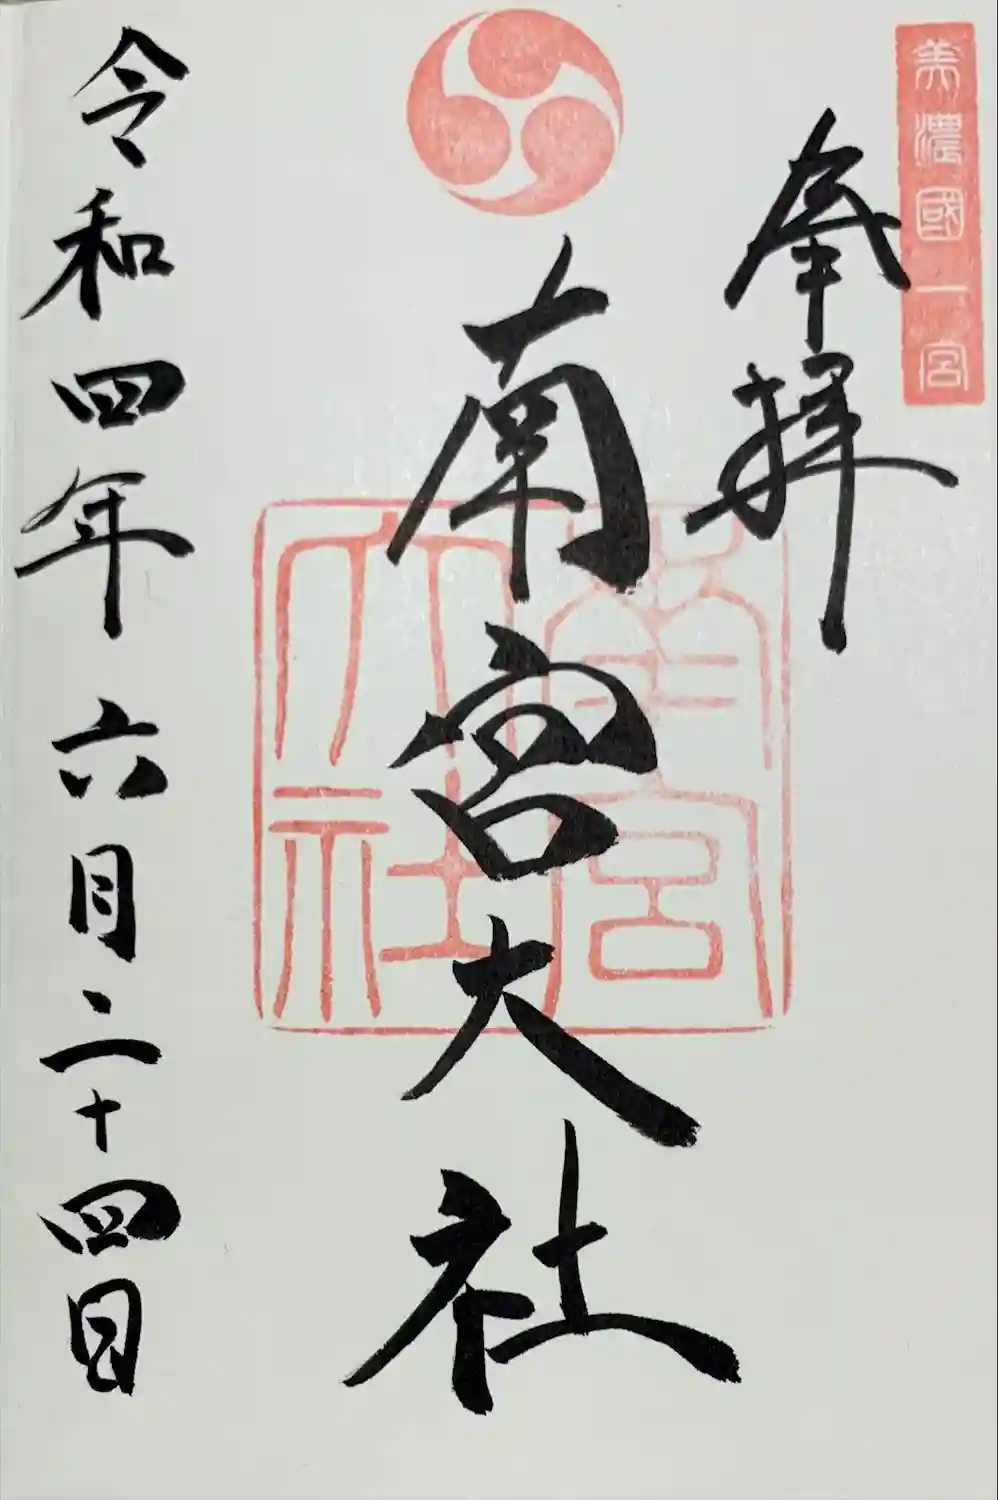 美濃國一宮
奉拝
南宮大社
南宮
大社
令和四年六月二十四日